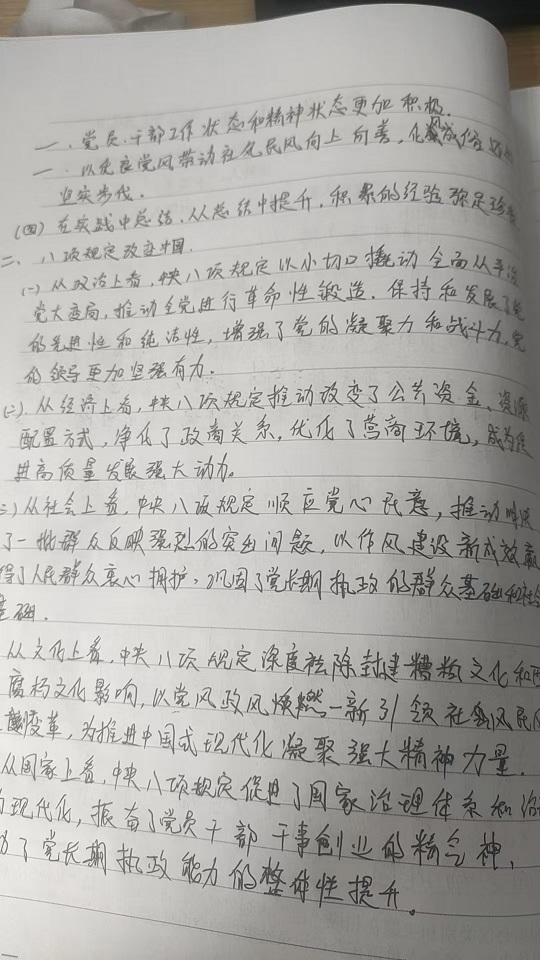 一、党员、干部工作状态和精神状态更加积极.
一、以优良党风带动社风民风向上向善,
坚实步伐.
(四)在实战中总结,从总结中提升,积累的经验弥足珍贵
二、八项规定改变中国.
(一)从政治上看,中央八项规定以小切口撬动全面从严治
党大变局,推动全党进行革命性锻造.保持和发展了党
的先进性和纯洁性,增强了党的凝聚力和战斗力,党
的领导更加坚强有力.
(二).从经济上看,中央八项规定推动改变了公共资金、资源
配置方式,净化了政商关系,优化了营商环境,成为促
进高质量发展强大动力。
三)从社会上看,中央八项规定顺应党心民意,推动解决
了一批群众反映强烈的突出问题,以作风建设新成效赢
得了人民群众衷心拥护,巩固了党长期执政的群众基础和社会
基础.
从文化上看,中央八项规定深度祛除封建糟粕文化和
腐朽文化影响,以党风政风焕然一新引领社会风民风
变革,为推进中国式现代化凝聚强大精神力量.
从国家上看,中央八项规定促进了国家治理体系和治
现代化,振奋了党员干部干事创业的精气神,
了党长期执政能力的整体性提升。